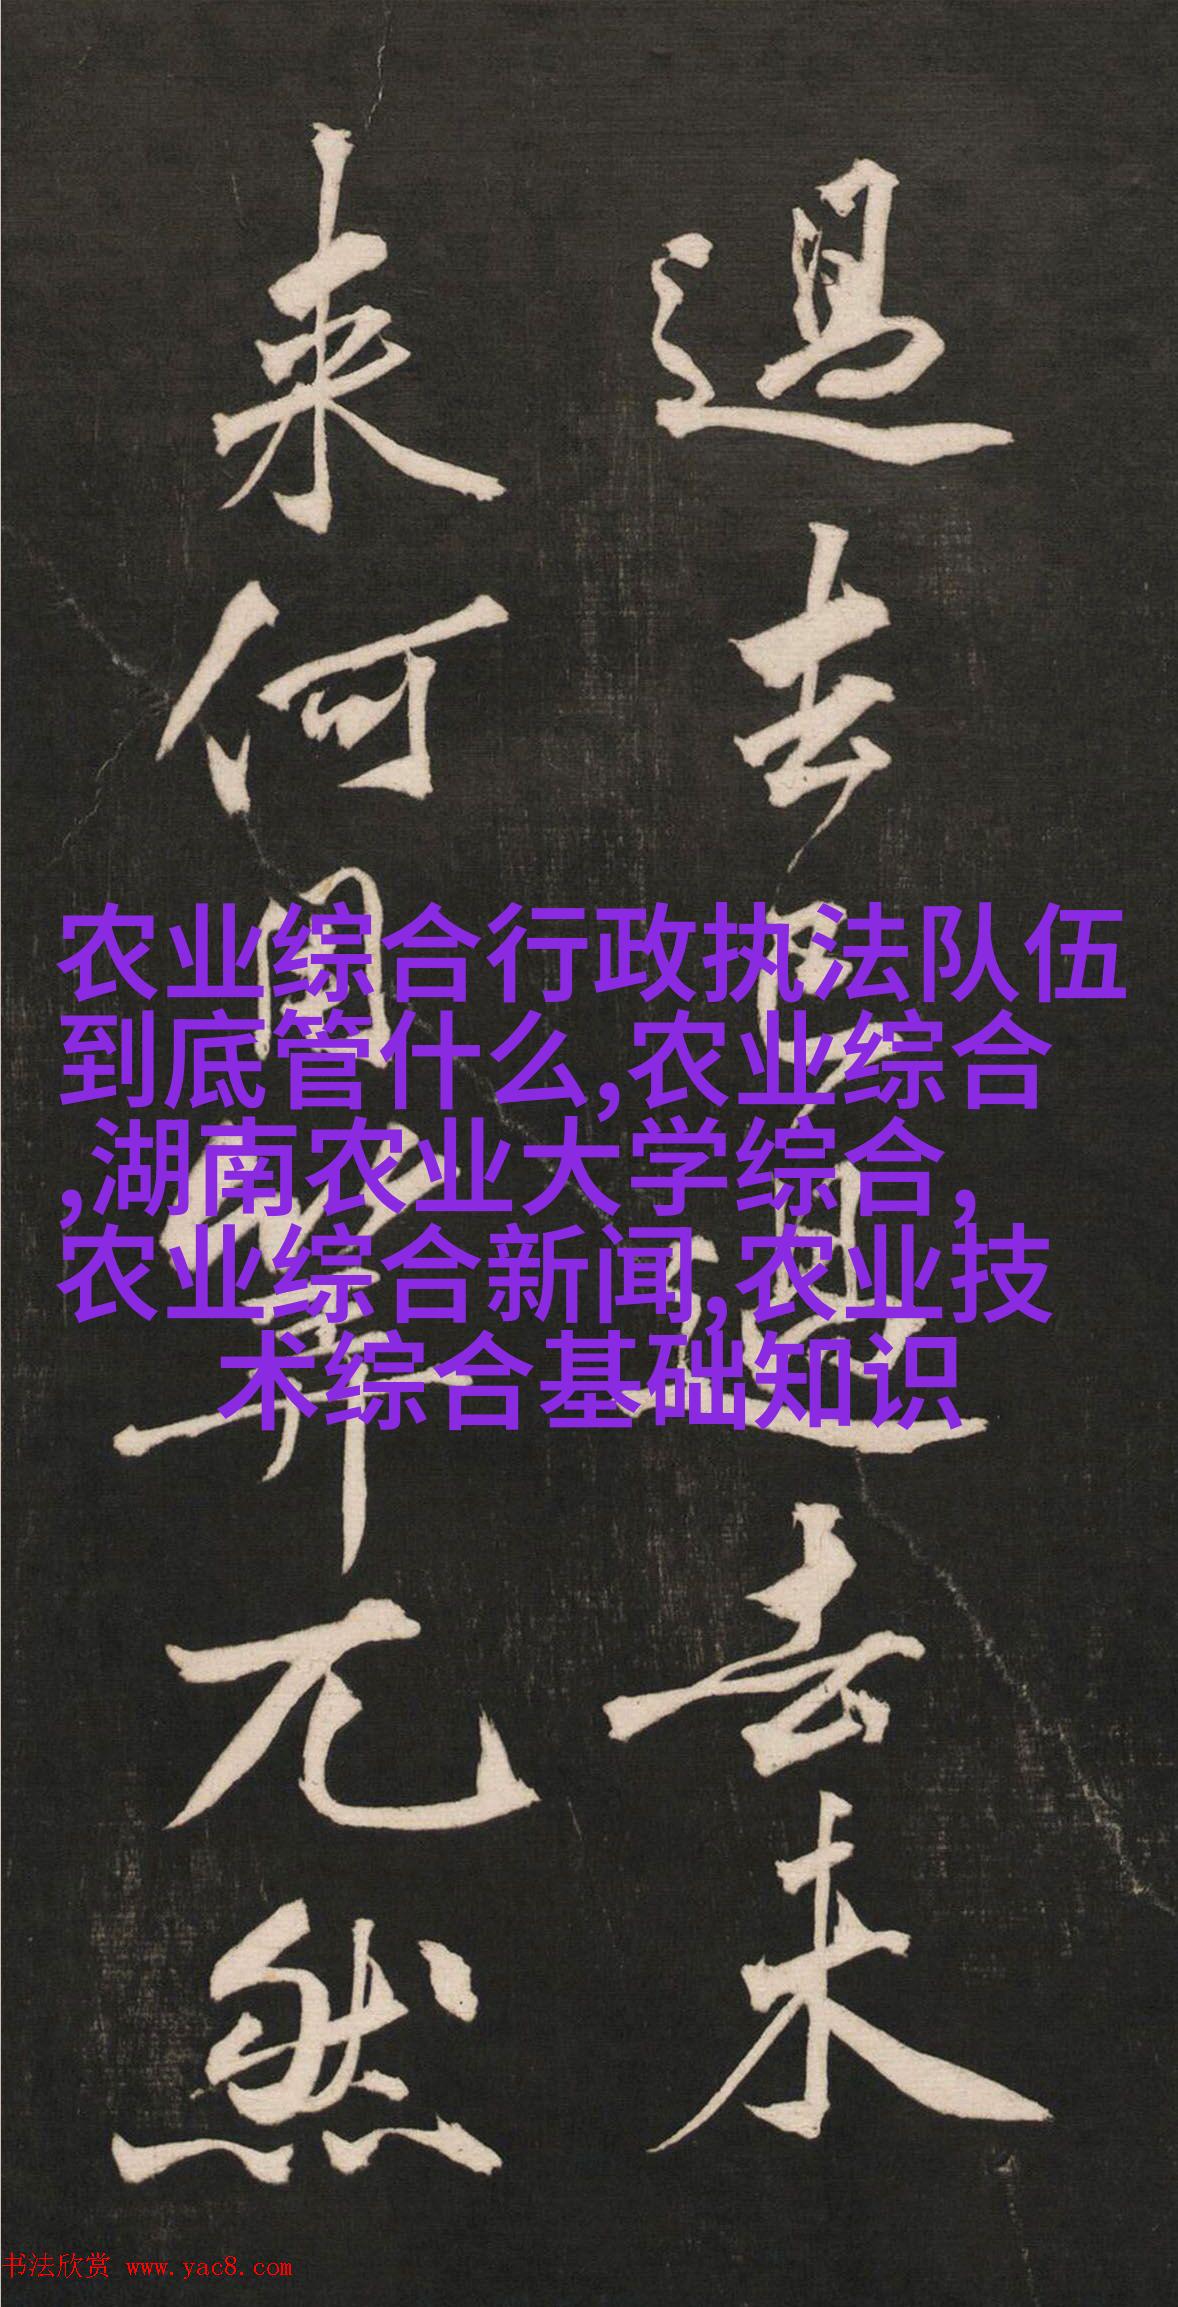 過去已過去未
来何用筭兀然
农业综合行政执法队伍
到底管什么,农业综合
,湖南农业大学综合,
农业综合新闻,农业技
术综合基础知识
书法欣赏 www.yac8.com